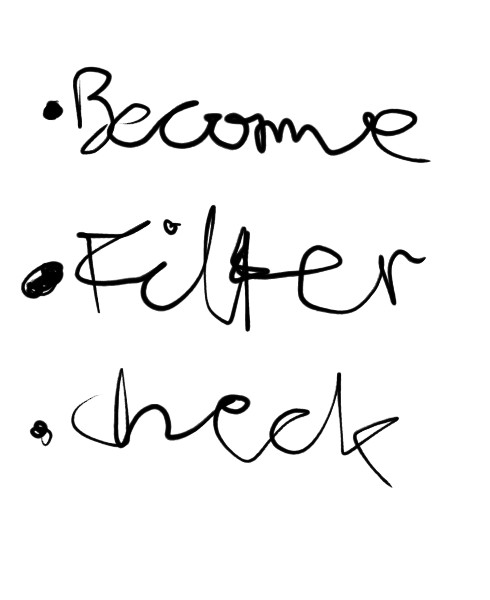 • Become
• Filter
• check